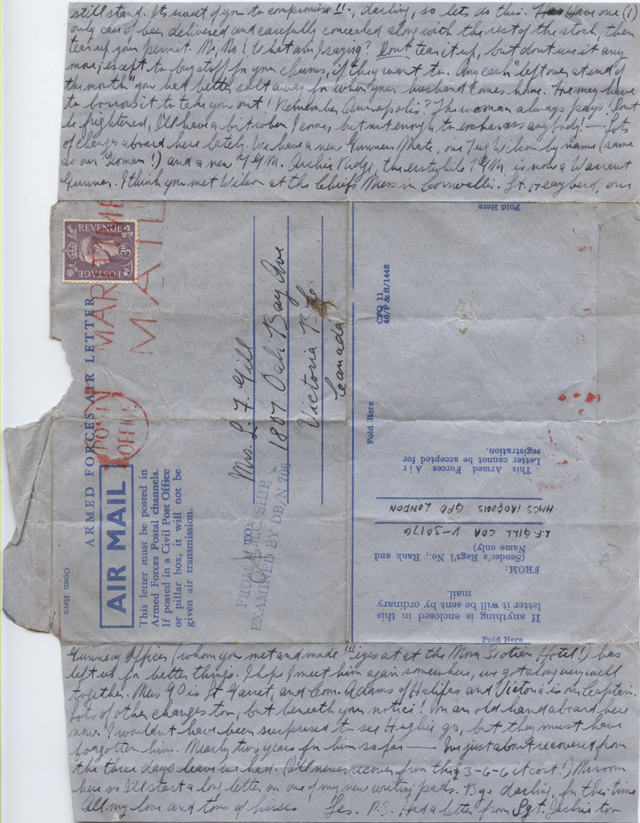 still stand. Its sweet of you to compromise!!, darling, so lets do this. Have one (1)
only case of beer delivered and carefully concealed along with the rest of the stock, then
tear up your permit. No, No! What am I saying? Dont tear it up, but dont use it any
more, except to buy stuff for your chums, if they want to. Any cash "left over at end of
the month" you had better salt away for when your husband comes home. He may have
to borrow it to take you out! Remember Annapolis? The woman always pays! Dont
be frightened, I'll have a bit when I come, but not enough to embarass anybody! — Lots
of changes aboard here lately. We have a new Gunners Mate, one Tug Wilson by name (same
as our Yeoman!) and a new G.M. Archie Hodge, the erstwhile G.M. is now a Warrant
Gunner. I think you met Wilson at the Chiefs Mess in Cornwallis. Lt. Heayberd, our
REVENUE
POSTAGE
3D
MARITIME
MAIL
POST
OFFICE
ARMED FORCES AIR LETTER
AIR MAIL
This letter must be posted in
Armed Forces Postal channels.
If posted in a Civil Post Office
or pillar box, it will not be
given air transmission.
Open Here
Mrs. L. F. Gill
1807 Oak Bay Ave
Victoria B.C.
Canada
FROM H.M.C. SHIP
EXAMINED BY DB/N
Fold Here
CFQ 11
40/P & S/1448
Fold Here
This Armed Forces Air
Letter cannot be accepted for
registration.
HMCS IROQUOIS GPO LONDON
L.F. GILL COA V-30176
FROM:
(Sender's Regt'l No., Rank and
Name only)
If anything is enclosed in this
letter it will be sent by ordinary
mail.
Fold Here
Gunnery Officer (whom you met and made "eyes at" at the Nova Scotian Hotel!) has
left us for better things. I hope I meet him again somewhere, we got along very well
together. New GO is Lt Garret, and Com. Adams of Halifax and Victoria is our captain.
Lots of other changes too, but beneath your notice! I'm an old hand aboard here
now. I wouldn't have been surprised to see Hughie go, but they must have
forgotten him. Nearly two years for him so far — I'm just about recovered from
the three days leave we had. (I'll never recover from the £3-6-6 it cost.) No room
here so I'll start a long letter on one of my new writing pads. Bye darling, for this time
All my love and tons of kisses Les. P.S. Had a letter from Sgt. Jackie too